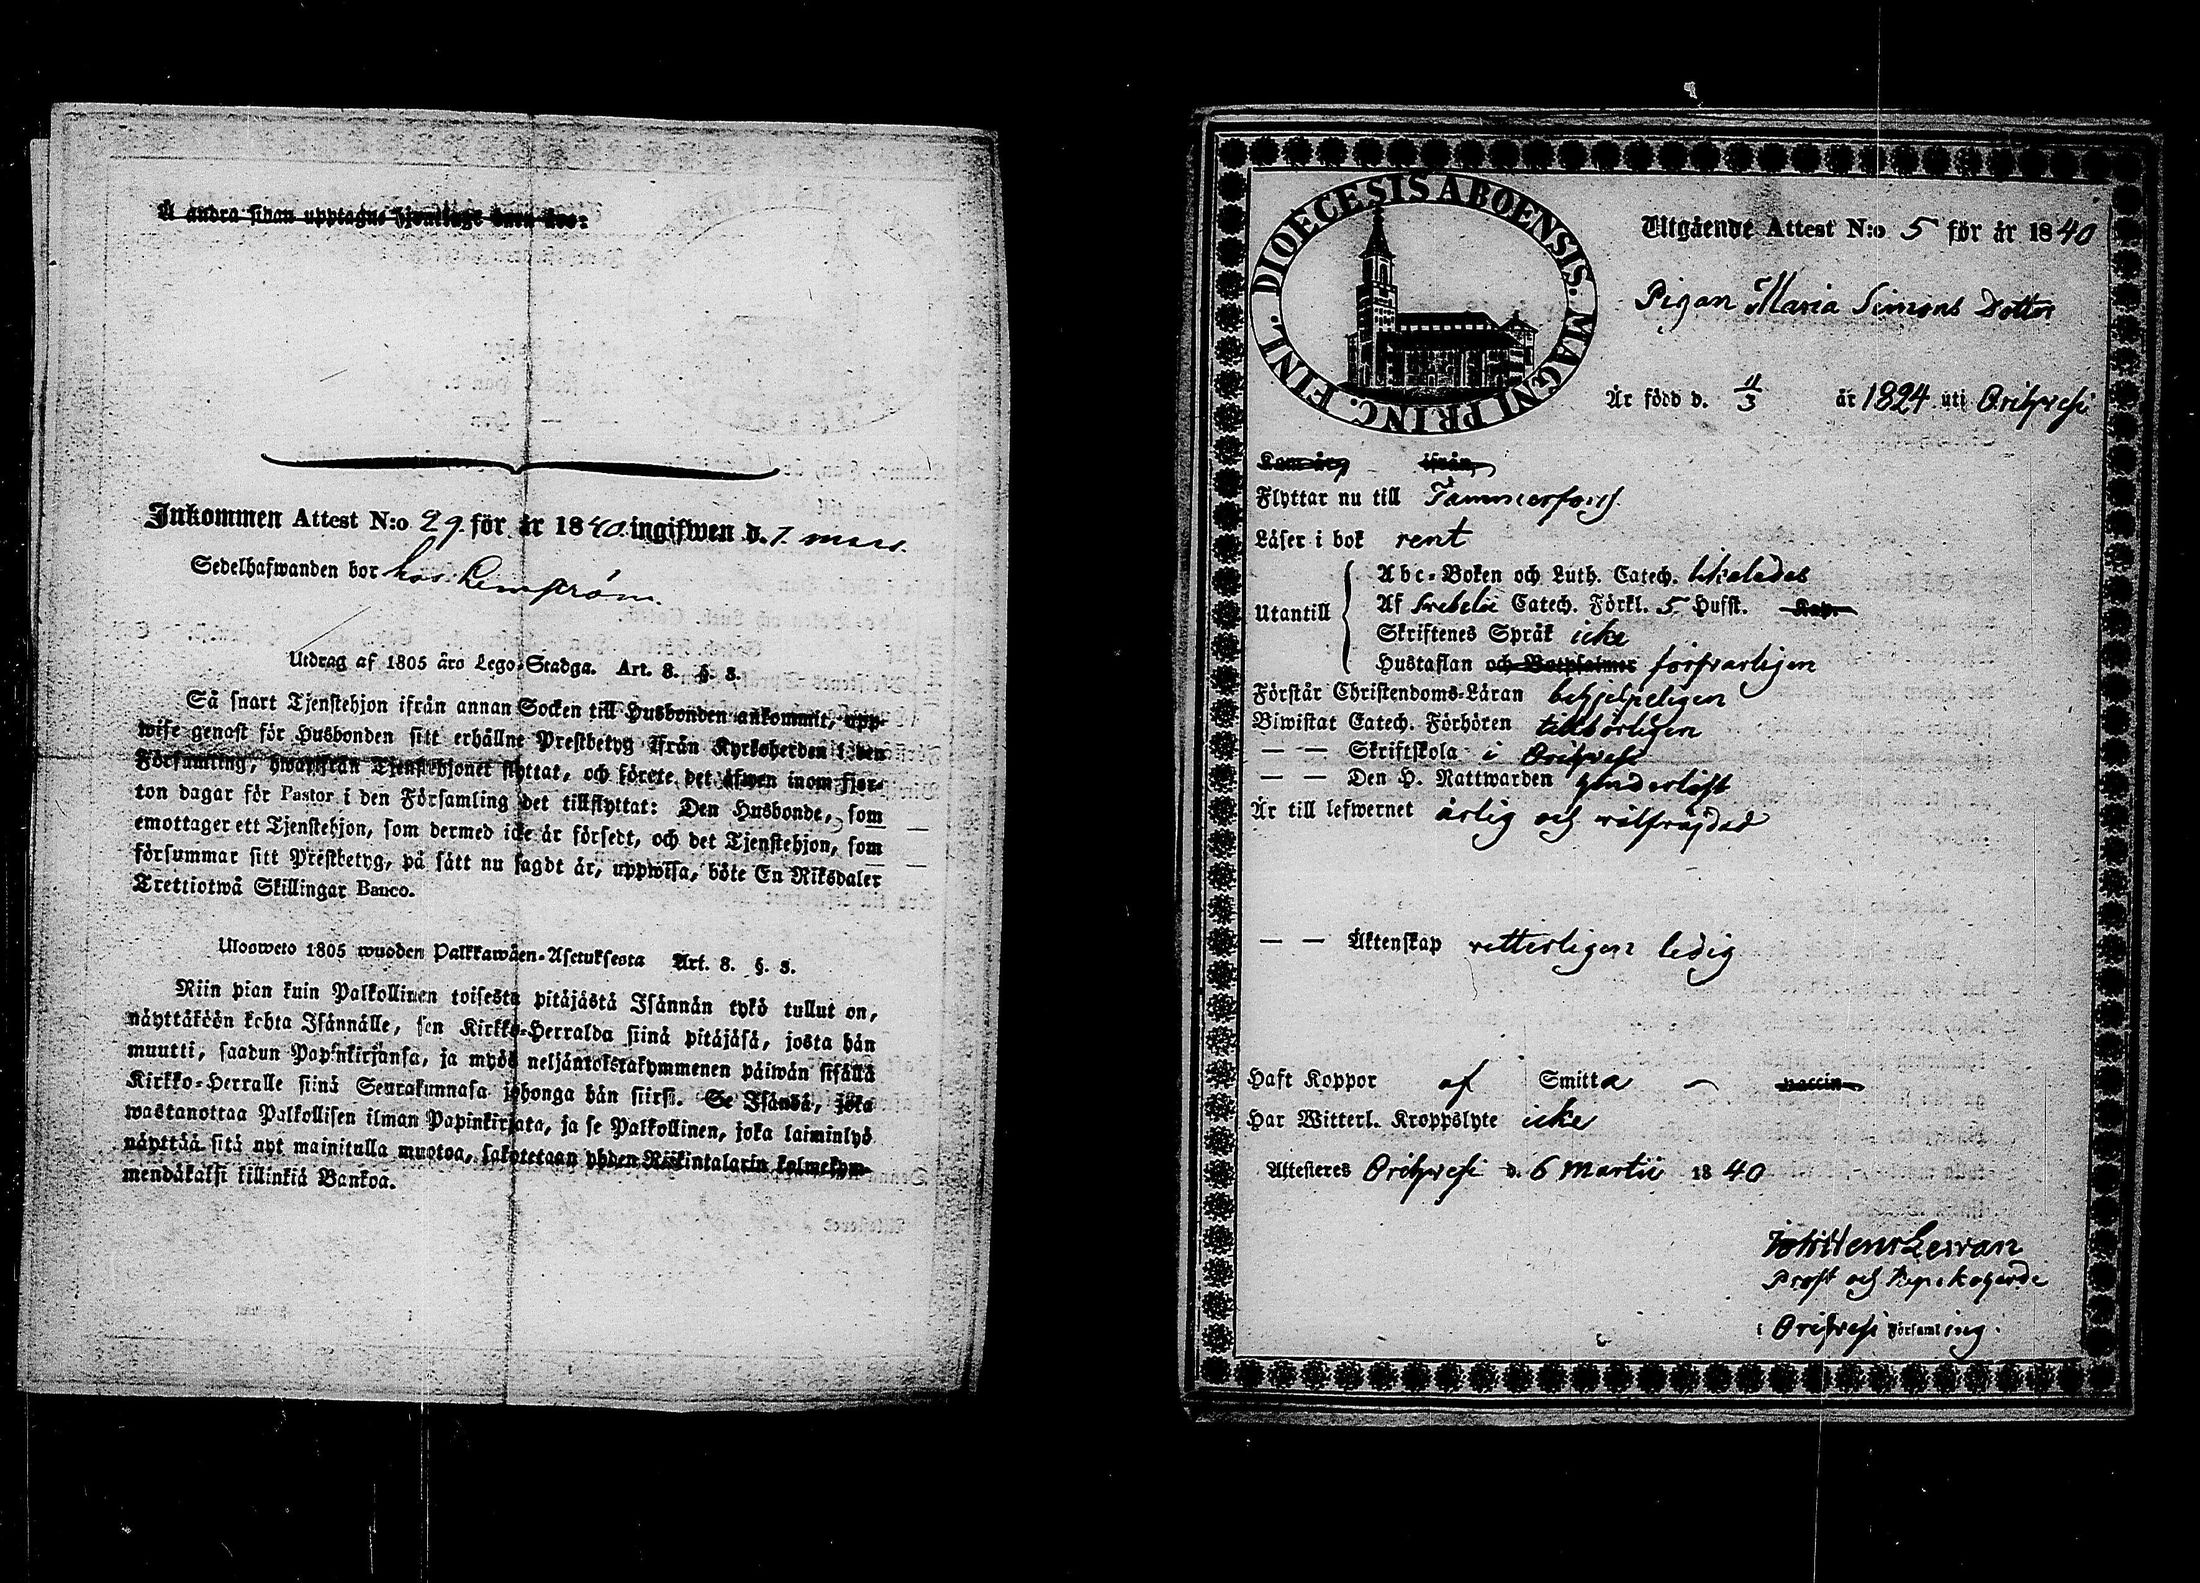 Å andra sidan upptagne Hjonelags barn äro:
Inkommen Attest N:o 29 för år 1840 ingifwen d. 7 mars.
Sedelhafwanden bor hos
Utdrag af 1805 åro Lego-Stadga. Art. 8. §. 3.
Så snart Tjenstehjon ifrån annan Socken till Husbonden ankommit, upp-
wise genast för Husbonden sitt erhållne Prestbetyg ifrån Kyrkoherden i den
Församling, hwarifrån Tjenstehjonet flyttat, och förete det äfwen inom fjor-
ton dagar för Pastor i den Församling det tillflyttat: Den Husbonde, som
emottager ett Tjenstehjon, som dermed icke är försedt, och det Tjenstehjon, som
försummar sitt Prestbetyg, på sätt nu sagdt är, uppwisa, böte En Riksdaler
Trettiotwå Skillingar Banco.
Ulosweto 1805 wuoden Palkkawäen-Asetuksesta Art. 8. §. 3.
Niin pian kuin Palkollinen toisesta pitäjästä Isännän tykö tullut on,
näyttäköön kohta Isännälle, sen Kirkko-Herralda siinä pitäjäsä, josta hän
muutti, saadun Papinkirjansa, ja myös neljäntoistakymmenen päiwän sisällä
Kirkko-Herralle siinä Seurakunnasa johonga hän siirsi. Se Isändä, joka
wastanottaa Palkollisen ilman Papinkirjata, ja se Palkollinen, joka laiminlyö
näyttää sitä nyt mainitulla muotoa, sakotetaan yhden Riikintalarin kolmekym-
mendäkaksi killinkiä Bankoa.
DIOECESIS ABOENSIS. MAGNI PRINC. FINL.
Utgående Attest N:o 5 för år 1840
Pigan Maria Simons Dotter
Är född d. 11/3 år 1824 uti Orihvesi
Kom år ifrån
Flyttar nu till Tammerfors
Läser i bok rent
Utantill
Abc-Boken och Luth. Catech. likaledes
Af Svebelii Catech. Förkl. 5 Hufst. Kap.
Skriftenes Språk icke
Hustaflan och Botpsalmer försvarligen
Förstår Christendoms-Läran behjelpeligen
Biwistat Catech. Förhören tillbörligen
— — Skriftskola i Orihvesi
— — Den H. Nattwarden
Är till lefwernet ärlig och välfräjdad
— — Äktenskap vitterligen ledig
Haft Koppor af Smitta — vaccin
Har Witterl. Kroppslyte icke
Attesteras Orihvesi d. 6 Martii 1840
Prost och Kyrckoherde
i Orihvesi Församling.